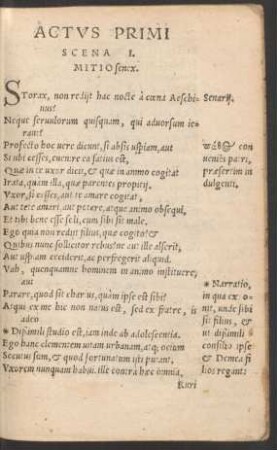 ACTVS PRIMI
SCENA I.
MITIO senex.
STorax, non redijt hac nocte à cœna Aeschi-
nus?
Senarij.
Neque seruulorum quisquam, qui aduorsum ie-
rant?
Profecto hoc uere dicunt, si absis uspiam, aut
Si ubi cesses, euenire ea satius est,
Quæ in te uxor dicit, & quæ in animo cogitat
Irata, quàm illa, quæ parentes propitij.
πάθος con
uenies patri,
præsertim in
dulgenti.
Vxor, si cesses, aut te amare cogitat,
Aut tete amari, aut potare, atque animo obsequi,
Et tibi bene esse soli, cum sibi sit male.
Ego quia non redijt filius, quæ cogito? &
Quibus nunc sollicitor rebus? ne aut ille alserit,
Aut uspiam ceciderit, ac perfregerit aliquid.
Vah, quenquamne hominem in animo instituere,
aut
Parare, quod sit charius, quàm ipse est sibi?
Atqui ex me hic non natus est, sed ex fratre, is
adeo
* Dissimili studio est, iam inde ab adolescentia.
Ego hanc clementem uitam urbanam, atq; ocium
Secutus sum, & quod fortunatum isti putant,
Vxorem nunquam habui. ille contra hæc omnia,
* Narratio,
in qua expo-
nit, unde sibi
sit filius, &
ut dissimili
consilio ipse
& Demea fi
lios regant:
Ruri